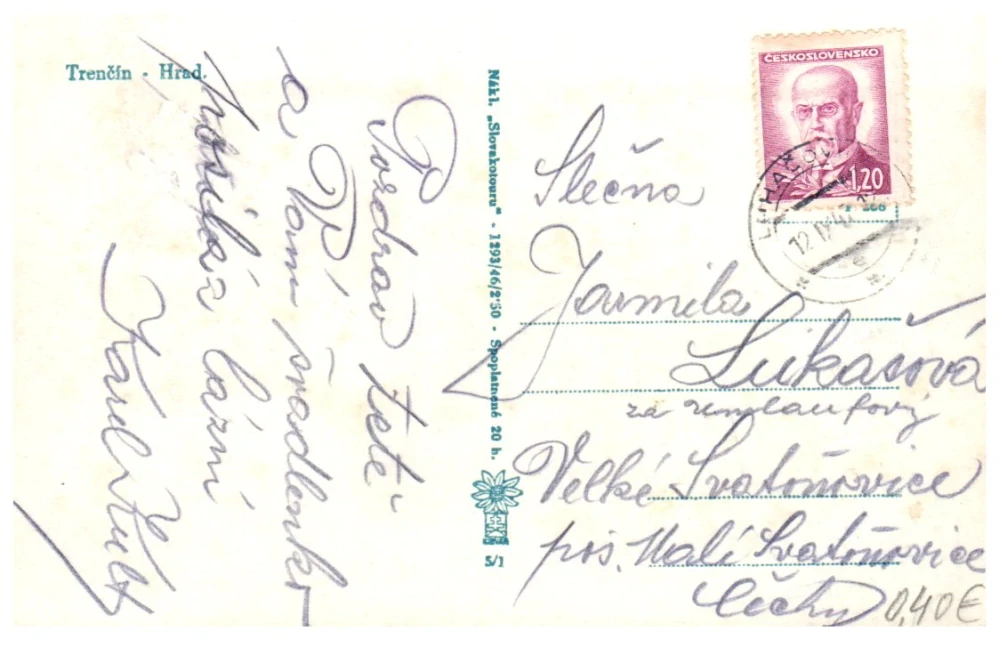 Trenčín - Hrad.
Pozdrav tetě
a Vám švadlenko
posílá z lázní
Karel
Nákl. „Slovakotouru" - 1293/46/2·50 - Spoplatnené 20 h.
S/1
ČESKOSLOVENSKO
1,20
12.IV.47
Slečna
Jarmila
Lukašová
za
Velké Svatoňovice
pos. Malé Svatoňovice
Čechy
0,40€